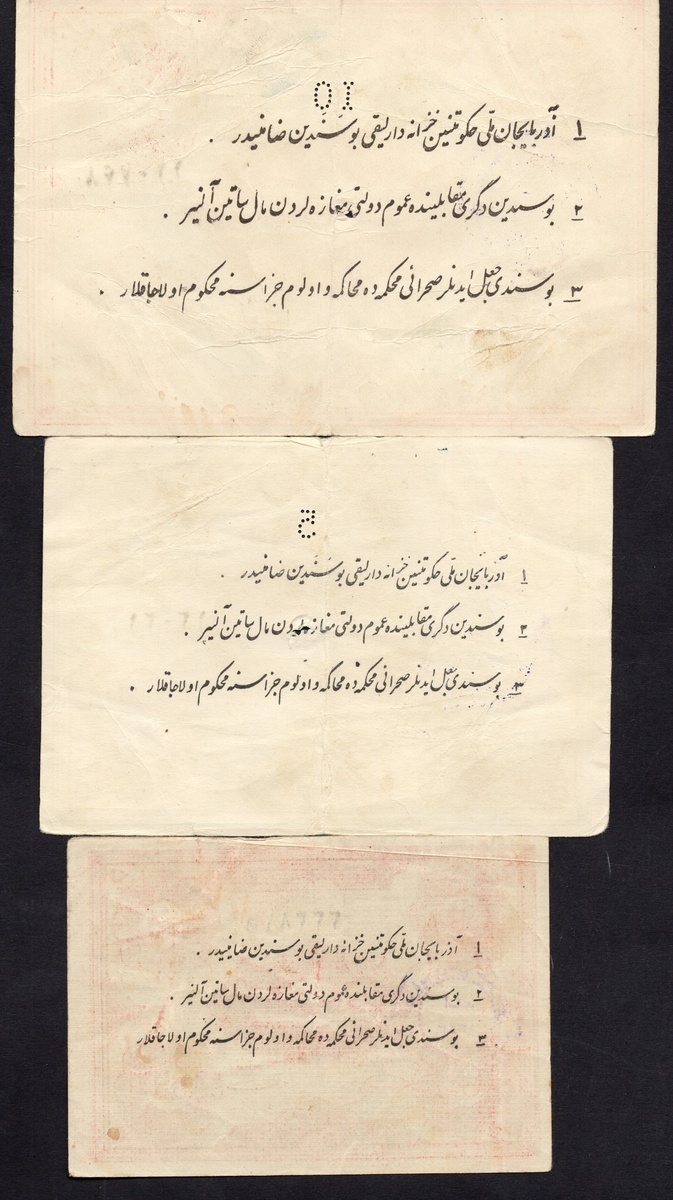 ۱ آذربایجان ملی حکومتنین خزانه دارلیقی بوسندین ضامنیدر .
۲ بوسندین دگری مقابلینده عموم دولتی مغازه لردن مال ساتین آلنیر .
۳ بوسندی جعل ایدنلر صحرائی محکمه ده محاکمه و اولوم جزاسنه محکوم اولاجاقلار .
۱ آذربایجان ملی حکومتنین خزانه دارلیقی بوسندین ضامنیدر .
۲ بوسندین دگری مقابلینده عموم دولتی مغازه لردن مال ساتین آلنیر .
۳ بوسندی جعل ایدنلر صحرائی محکمه ده محاکمه و اولوم جزاسنه محکوم اولاجاقلار .
۱ آذربایجان ملی حکومتنین خزانه دارلیقی بوسندین ضامنیدر .
۲ بوسندین دگری مقابلینده عموم دولتی مغازه لردن مال ساتین آلنیر .
۳ بوسندی جعل ایدنلر صحرائی محکمه ده محاکمه و اولوم جزاسنه محکوم اولاجاقلار